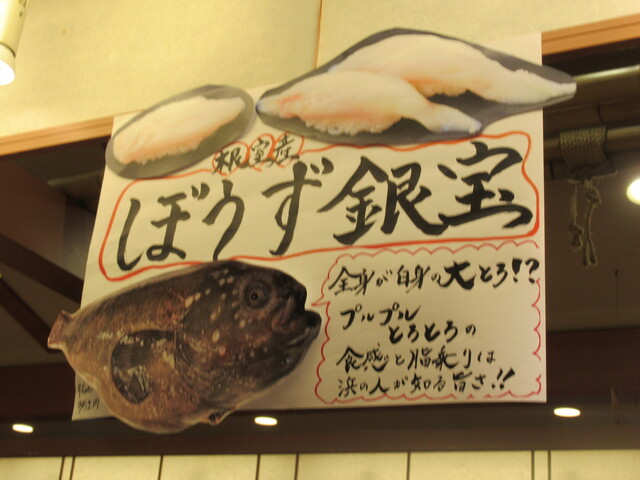 根室産
ぼうず銀宝
全身が白身の大とろ!?
プルプル
とろとろの
食感りと脂乗りは
浜の人が知る旨さ!!